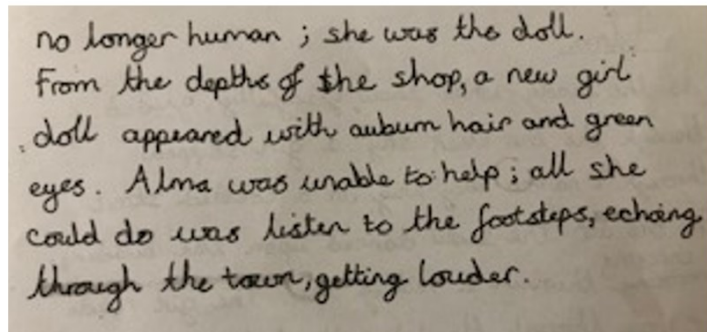 no longer human ; she was the doll.
From the depths of the shop, a new girl
doll appeared with auburn hair and green
eyes. Alma was unable to help ; all she
could do was listen to the footsteps, echoing
through the town, getting louder.